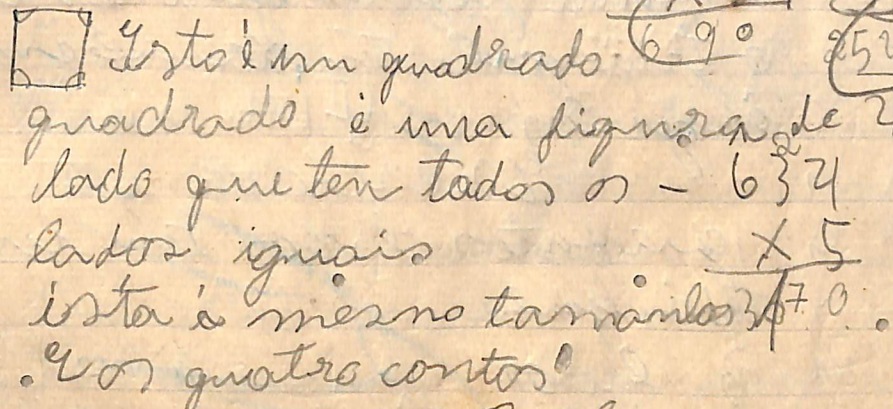 Isto é um quadrado. 690
quadrado é uma figura de
lado que ten todos os - 634
lados iguais x 5
ista é mesno tamanhos 3170.
. E os quatro contos